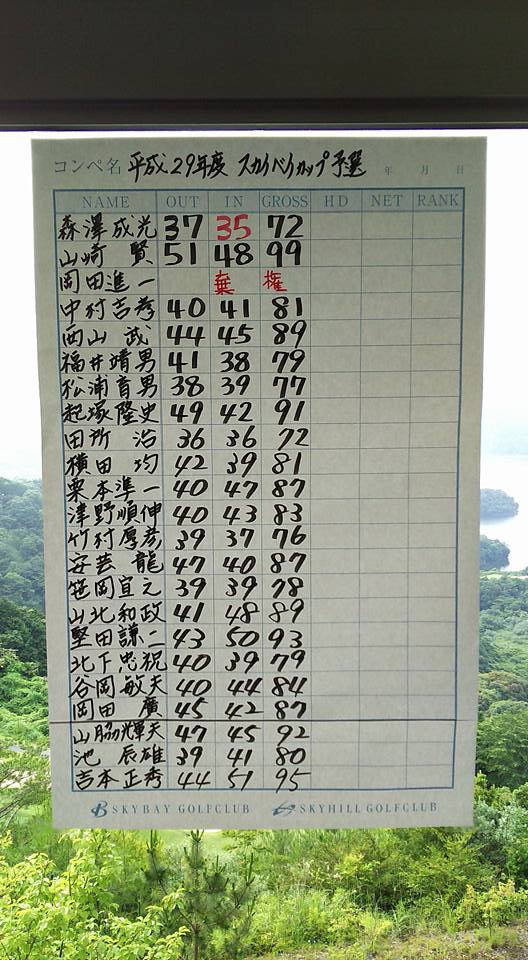 コンペ名 平成29年度 スカイベイカップ予選 年 月 日
NAME OUT IN GROSS HD NET RANK
森澤成光 37 35 72
山崎 賢 51 48 99
岡田進一 棄権
中村吉孝 40 41 81
西山 武 44 45 89
福井靖男 41 38 79
松浦育男 38 39 77
起塚隆史 49 42 91
田所 治 36 36 72
横田 均 42 39 81
栗本準一 40 47 87
津野順伸 40 43 83
竹村厚彦 39 37 76
安芸 龍 47 40 87
笹岡宜之 39 39 78
山北和政 41 48 89
堅田謙二 43 50 93
北下忠祝 40 39 79
谷岡敏夫 40 44 84
岡田 廣 45 42 87
山脇輝夫 47 45 92
池 辰雄 39 41 80
吉本正秀 44 51 95
SKYBAY GOLFCLUB SKYHILL GOLFCLUB